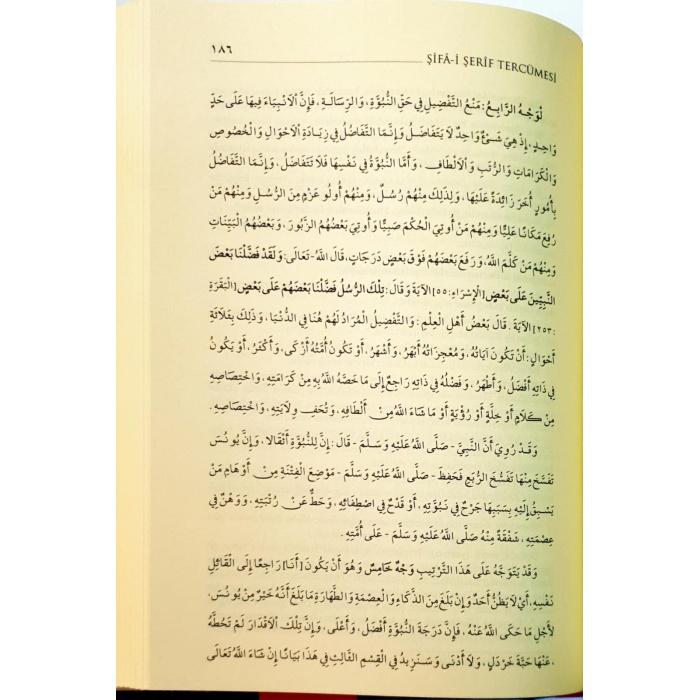 ١٨٦
ŞİFÂ-İ ŞERİF TERCÜMESİ
لْوَجْهُ الرَّابِعُ: مَنْعُ التَّفْضِيلِ فِي حَقِّ النُّبُوَّةِ، وَالرِّسَالَةِ، فَإِنَّ الْاَنْبِيَاءَ فِيهَا عَلَى حَدٍّ
وَاحِدٍ، إِذْ هِيَ شَيْءٌ وَاحِدٌ لَا يَتَفَاضَلُ وَإِنَّمَا التَّفَاضُلُ فِي زِيَادَةِ الْاَحْوَالِ وَالْخُصُوصِ
وَالْكَرَامَاتِ وَالرُّتَبِ وَالْاَلْطَافِ، وَأَمَّا النُّبُوَّةُ فِي نَفْسِهَا فَلَا تَتَفَاضَلُ، وَإِنَّمَا التَّفَاضُلُ
بِأُمُورٍ أُخَرَ زَائِدَةٌ عَلَيْهَا، وَلِذٰلِكَ مِنْهُمْ رُسُلٌ، وَمِنْهُمْ أُولُو عَزْمٍ مِنَ الرُّسُلِ وَمِنْهُمْ مَنْ
رُفِعَ مَكَانًا عَلِيًّا وَمِنْهُمْ مَنْ أُوتِيَ الْحُكْمَ صَبِيًّا وَأُوتِيَ بَعْضُهُمُ الزَّبُورَ، وَبَعْضُهُمُ الْبَيِّنَاتِ
وَمِنْهُمْ مَنْ كَلَّمَ اللّٰهُ، وَرَفَعَ بَعْضَهُمْ فَوْقَ بَعْضٍ دَرَجَاتٍ، قَالَ اللّٰهُ-تَعَالَى: وَلَقَدْ فَضَّلْنَا بَعْضَ
النَّبِيِّينَ عَلَى بَعْضٍ [الْإِسْرَاءِ: ٥٥] الْآيَةَ وَقَالَ: تِلْكَ الرُّسُلُ فَضَّلْنَا بَعْضَهُمْ عَلَى بَعْضٍ [الْبَقَرَةِ
:٢٥٣] الْآيَةَ. قَالَ بَعْضُ أَهْلِ الْعِلْمِ: وَالتَّفْضِيلُ الْمُرَادُ لَهُمْ هُنَا فِي الدُّنْيَا، وَذٰلِكَ بِثَلَاثَةِ
أَحْوَالٍ: أَنْ تَكُونَ آيَاتُهُ، وَمُعْجِزَاتُهُ أَبْهَرُ، وَأَشْهَرُ، أَوْ تَكُونَ أُمَّتُهُ أَزْكَى، وَأَكْثَرُ، أَوْ يَكُونُ
فِي ذَاتِهِ أَفْضَلُ، وَأَظْهَرُ، وَفَضْلُهُ فِي ذَاتِهِ رَاجِعٌ إِلَى مَا خَصَّهُ اللّٰهُ بِهِ مِنْ كَرَامَتِهِ، وَاخْتِصَاصِهِ
مِنْ كَلَامٍ أَوْ خِلَّةٍ أَوْ رُؤْيَةٍ أَوْ مَا شَاءَ اللّٰهُ مِنْ أَلْطَافِهِ، وَتُحَفِ وِلَايَتِهِ، وَاخْتِصَاصِهِ.
وَقَدْ رُوِيَ أَنَّ النَّبِيَّ - صَلَّى اللّٰهُ عَلَيْهِ وَسَلَّمَ - قَالَ: إِنَّ لِلنُّبُوَّةِ أَثْقَالًا، وَإِنَّ يُونُسَ
تَفَسَّخَ مِنْهَا تَفَسُّخَ الرُّبَعِ فَحَفِظَ - صَلَّى اللّٰهُ عَلَيْهِ وَسَلَّمَ - مَوْضِعَ الْفِتْنَةِ مِنْ أَوْهَامِ مَنْ
يَسْبِقُ إِلَيْهِ بِسَبَبِهَا جَرْحٌ فِي نُبُوَّتِهِ، أَوْ قَدْحٌ فِي اصْطِفَائِهِ، وَحَطٌّ عَنْ رُتْبَتِهِ، وَوَهْنٌ فِي
عِصْمَتِهِ، شَفَقَةً مِنْهُ صَلَّى اللّٰهُ عَلَيْهِ وَسَلَّمَ - عَلَى أُمَّتِهِ.
وَقَدْ يَتَوَجَّهُ عَلَى هَذَا التَّرْتِيبِ وَجْهٌ خَامِسٌ وَهُوَ أَنْ يَكُونَ [أَنَا] رَاجِعًا إِلَى الْقَائِلِ
نَفْسِهِ، أَيْ لَا يَظُنُّ أَحَدٌ وَإِنْ بَلَغَ مِنَ الذَّكَاءِ وَالْعِصْمَةِ وَالطَّهَارَةِ مَا بَلَغَ أَنَّهُ خَيْرٌ مِنْ يُونُسَ،
لِأَجْلِ مَا حَكَى اللّٰهُ عَنْهُ، فَإِنَّ دَرَجَةَ النُّبُوَّةِ أَفْضَلُ، وَأَعْلَى، وَإِنَّ تِلْكَ الْاَقْدَارَ لَمْ تَحُطَّهُ
عَنْهَا حَبَّةَ خَرْدَلٍ، وَلَا أَدْنَى وَسَنَزِيدُ فِي الْقِسْمِ الثَّالِثِ فِي هَذَا بَيَانًا إِنْ شَاءَ اللّٰهُ تَعَالَى